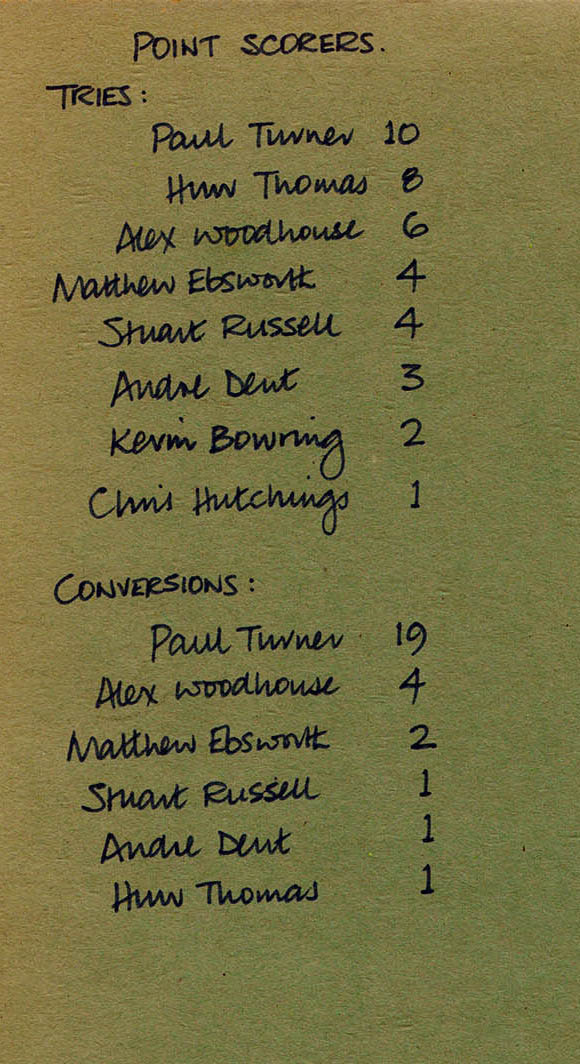 POINT SCORERS.
TRIES:
Paul Turner 10
Huw Thomas 8
Alex Woodhouse 6
Matthew Ebsworth 4
Stuart Russell 4
Andre Dent 3
Kevin Bowring 2
Chris Hutchings 1
CONVERSIONS:
Paul Turner 19
Alex Woodhouse 4
Matthew Ebsworth 2
Stuart Russell 1
Andre Dent 1
Huw Thomas 1